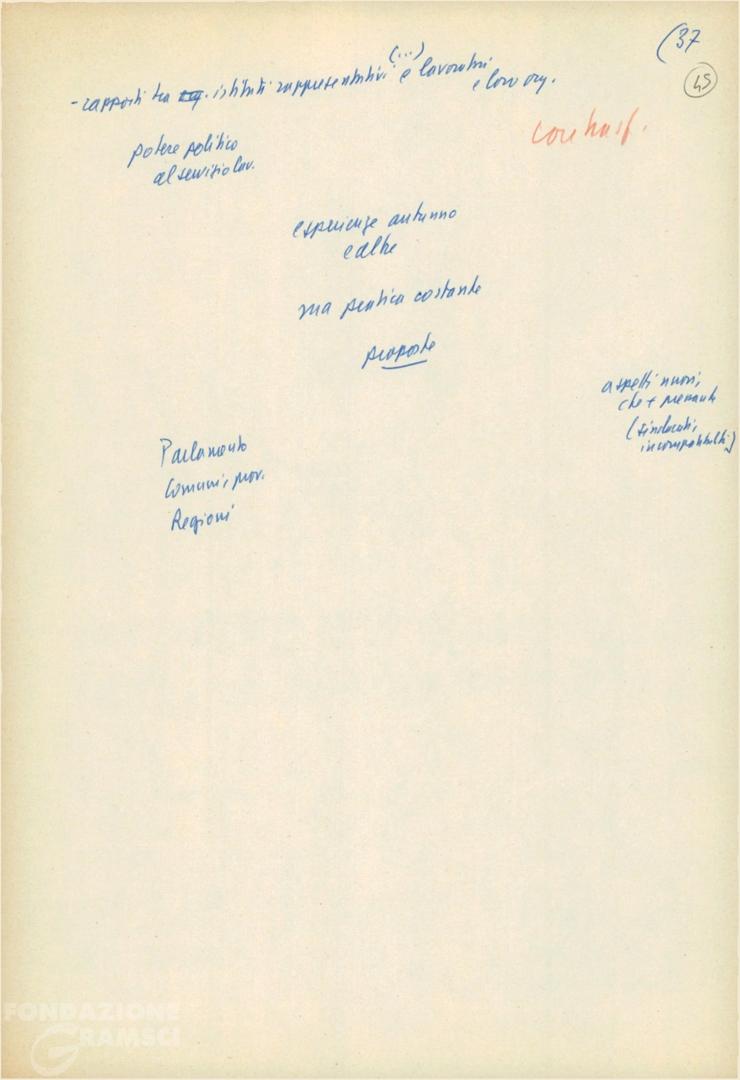 (37
45
- rapporti tra istituti rappresentativi (...) e lavoratori
e loro org.
contrast.
potere politico
al servizio lav.
esperienze autunno
e altre
ma pratica costante
proposte
aspetti nuovi,
che +
(sindacati,
incompatibilità)
Parlamento
Comuni, prov.
Regioni
FONDAZIONE
GRAMSCI